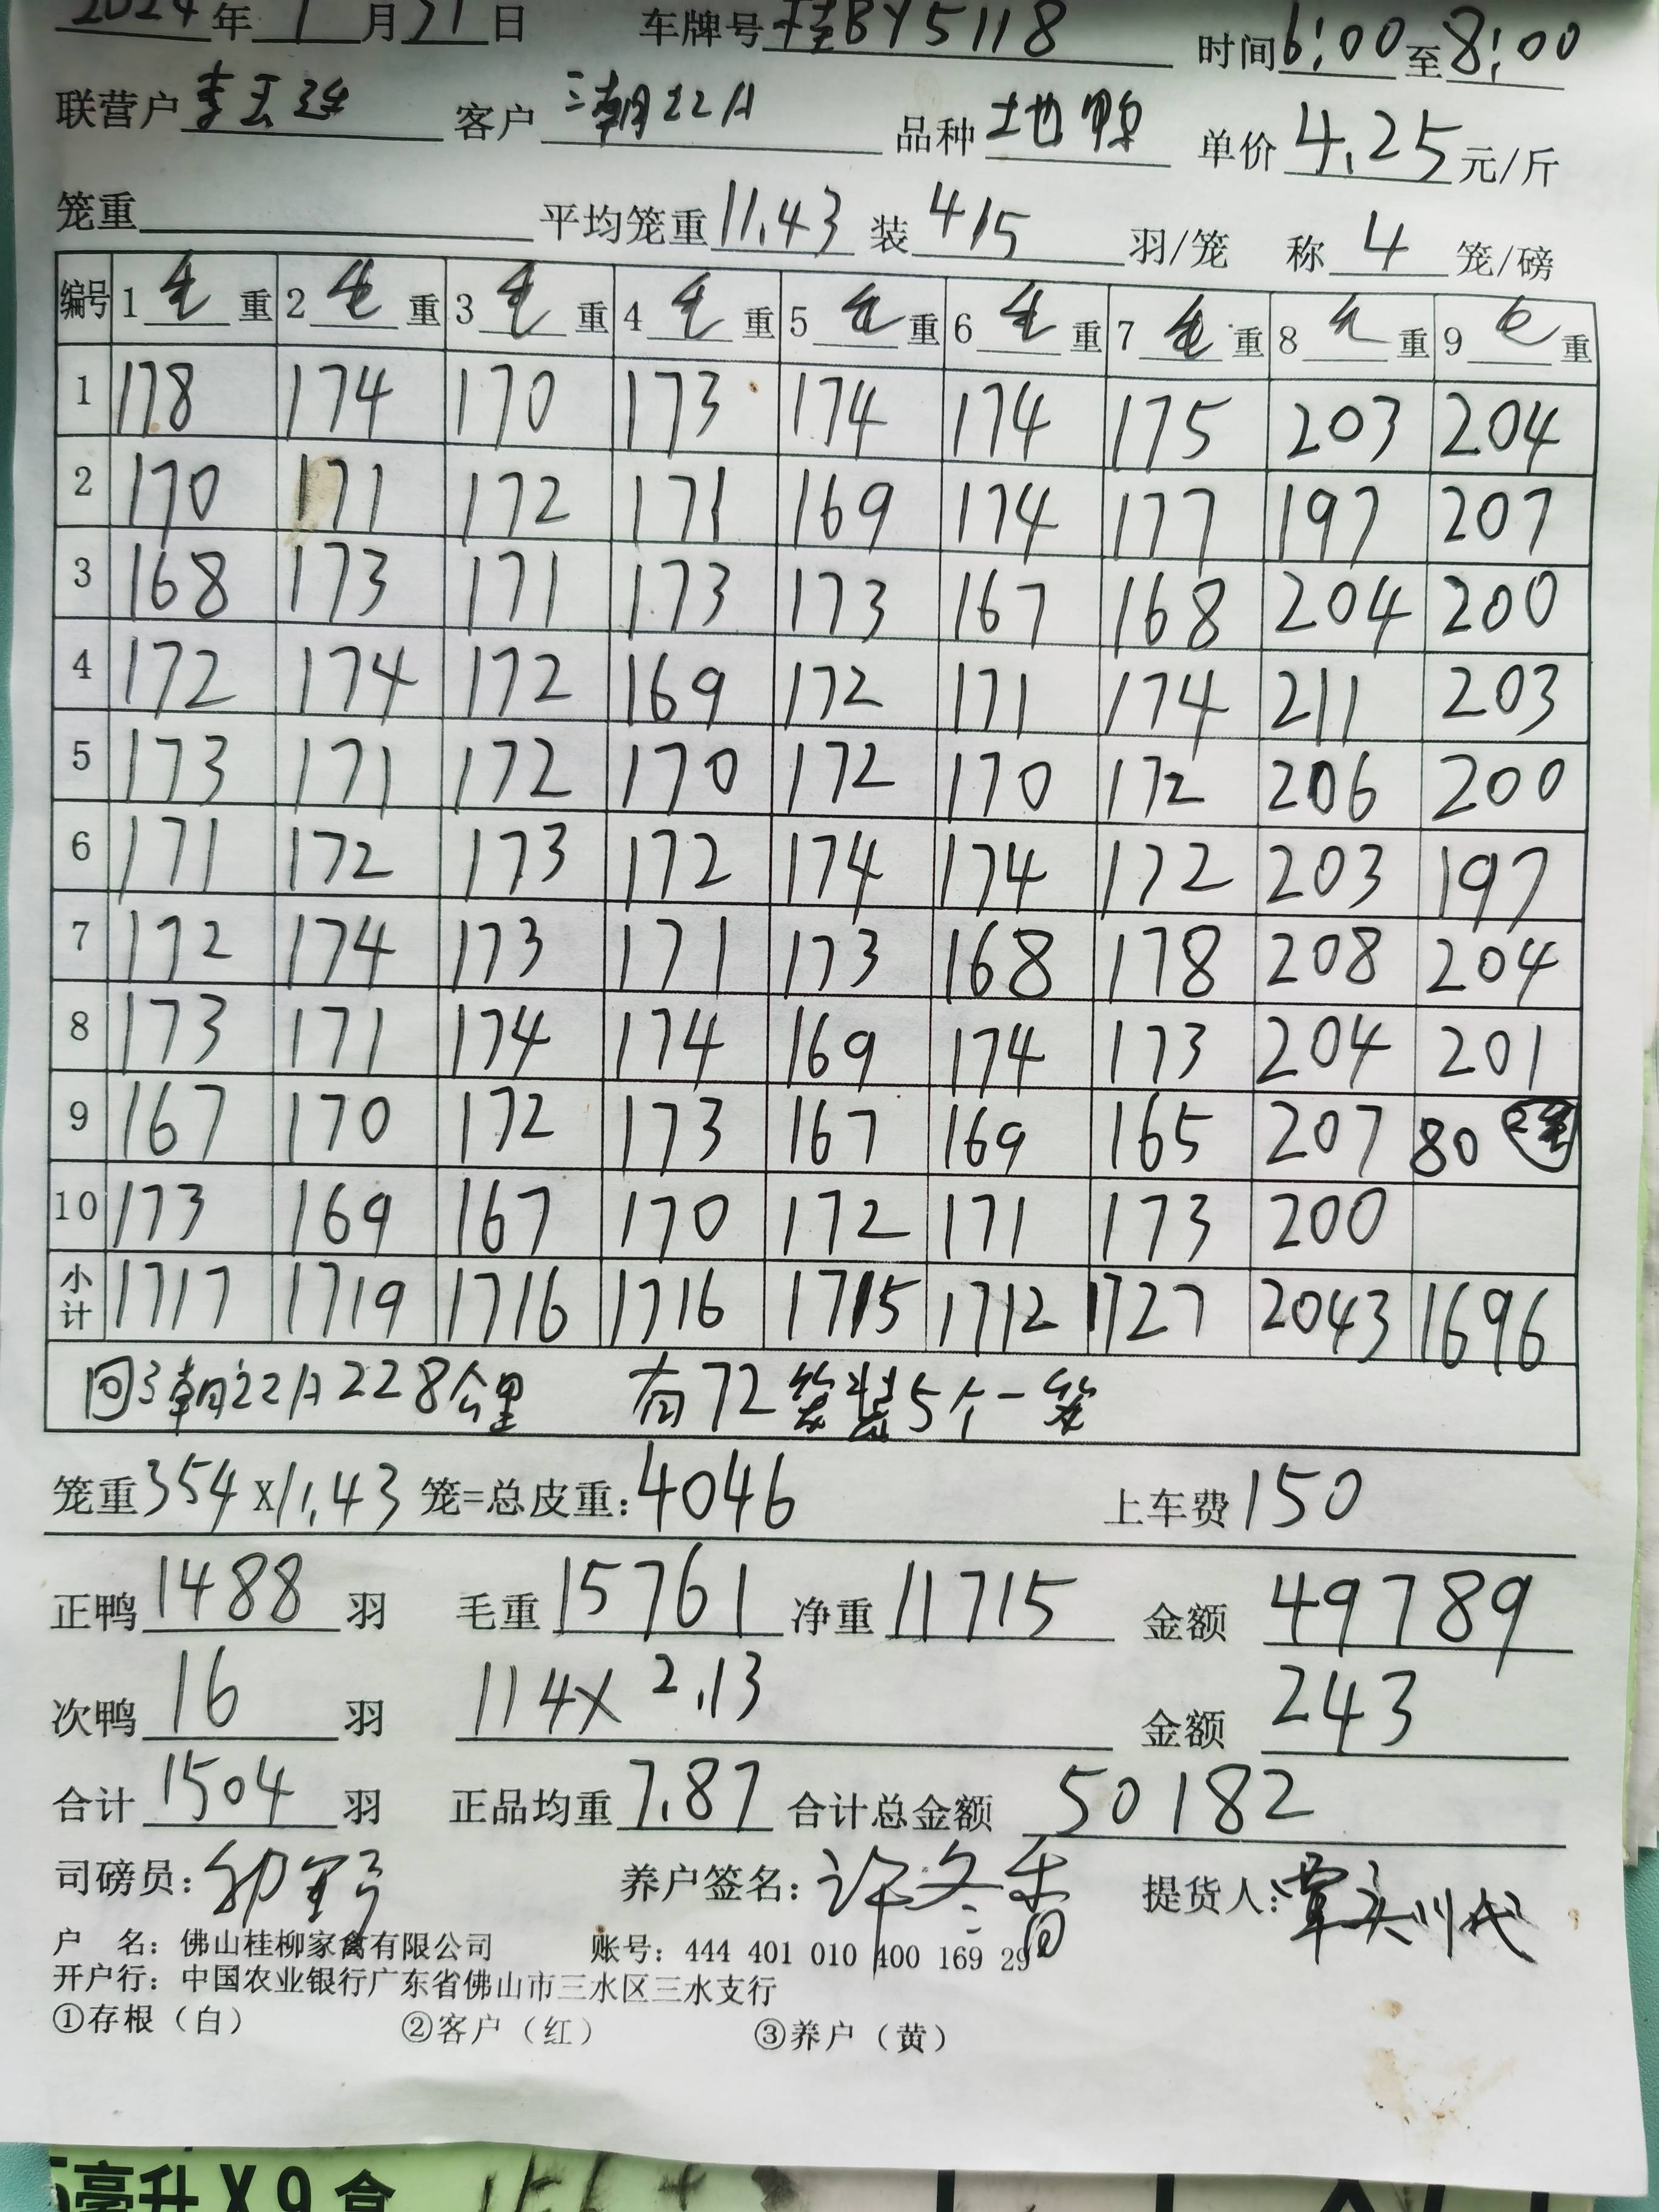 2024年1月21日 车牌号桂BY5118 时间6:00至8:00
联营户 客户 品种土地鸭 单价4.25元/斤
笼重 平均笼重11.43 装4/5羽/笼 称4笼/磅
编号 1毛重 2毛重 3毛重 4毛重 5毛重 6毛重 7毛重 8毛重 9毛重
1 178 174 170 173 174 174 175 203 204
2 170 171 172 171 169 174 177 197 207
3 168 173 171 173 173 167 168 204 200
4 172 174 172 169 172 171 174 211 203
5 173 171 172 170 172 170 172 206 200
6 171 172 173 172 174 174 172 203 197
7 172 174 173 171 173 168 178 208 204
8 173 171 174 174 169 174 173 204 201
9 167 170 172 173 167 169 165 207 80 2笼
10 173 169 167 170 172 171 173 200
小计 1717 1719 1716 1716 1715 1712 1727 2043 1696
228公里 有72笼装5个一笼
笼重354×11.43笼=总皮重:4046 上车费150
正鸭1488羽 毛重15761 净重11715 金额49789
次鸭16羽 114×2.13 金额243
合计1504羽 正品均重7.87 合计总金额50182
司磅员: 养户签名:许冬 提货人:
户 名:佛山桂柳家禽有限公司 账号:444 401 010 400 169 29
开户行:中国农业银行广东省佛山市三水区三水支行
①存根(白) ②客户(红) ③养户(黄)
毫升X9盒